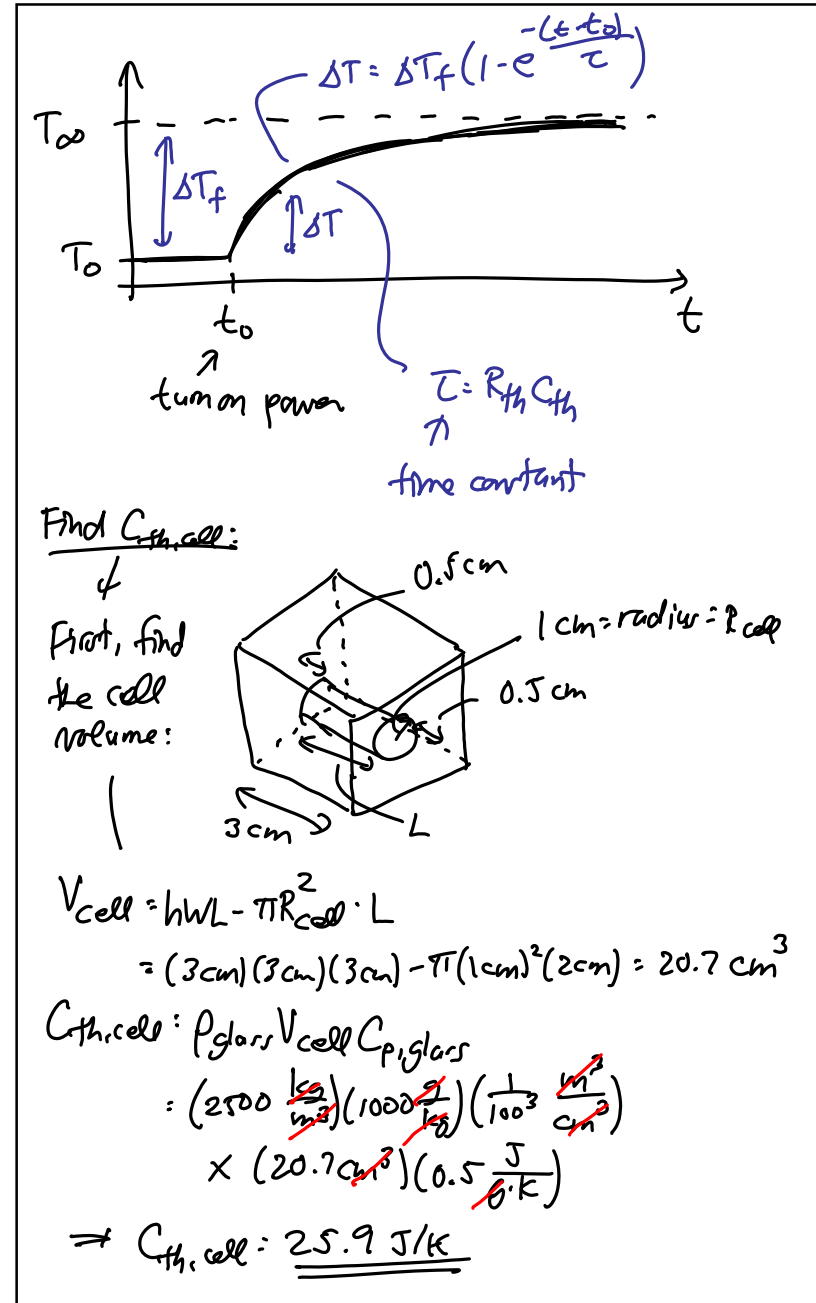 ΔT = ΔT_f (1 - e^{-(t-t_0)/τ})
T_∞
ΔT_f
ΔT
T_0
t_0
t
turn on power
τ = R_th C_th
time constant
Find C_th,cell:
0.5 cm
1 cm = radius = R_cell
First, find
the cell
volume:
0.5 cm
3 cm
L
V_cell = hWL - πR_cell^2 · L
= (3cm)(3cm)(3cm) - π(1cm)^2(2cm) = 20.7 cm^3
C_th,cell = ρ_glass V_cell C_p,glass
= (2500 kg/m^3)(1000 g/kg)(1/100^3 m^3/cm^3)
× (20.7 cm^3)(0.5 J/g·K)
⇒ C_th,cell = 25.9 J/K